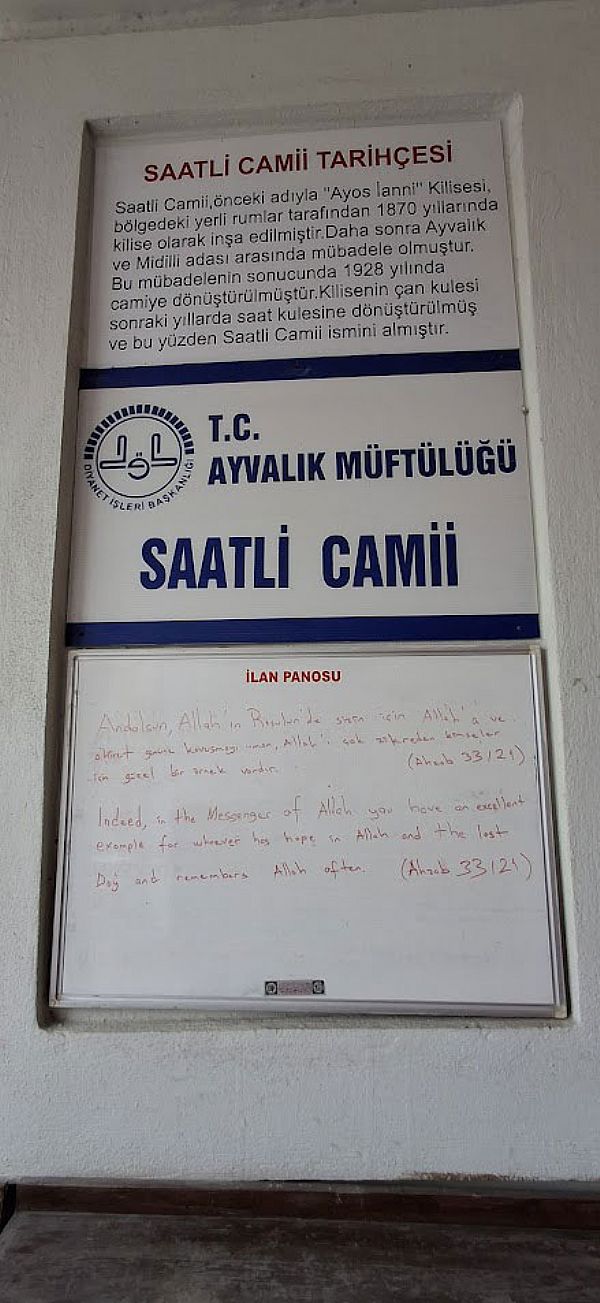 SAATLİ CAMİİ TARİHÇESİ
Saatli Camii,önceki adıyla "Ayos İanni" Kilisesi,
bölgedeki yerli rumlar tarafından 1870 yıllarında
kilise olarak inşa edilmiştir.Daha sonra Ayvalık
ve Midilli adası arasında mübadele olmuştur.
Bu mübadelenin sonucunda 1928 yılında
camiye dönüştürülmüştür.Kilisenin çan kulesi
sonraki yıllarda saat kulesine dönüştürülmüş
ve bu yüzden Saatli Camii ismini almıştır.
DİYANET İŞLERİ BAŞKANLIĞI
T.C.
AYVALIK MÜFTÜLÜĞÜ
SAATLİ CAMİİ
İLAN PANOSU
Andolsun, Allah'ın Rasulun'de sizin için Allah'a ve
ahiret gününe kavuşmayı uman, Allah'ı çok zikreden kimseler
için güzel bir örnek vardır. (Ahzab 33/21)
Indeed, in the Messenger of Allah you have an excellent
example for whoever has hope in Allah and the last
Day and remembers Allah often. (Ahzab 33/21)